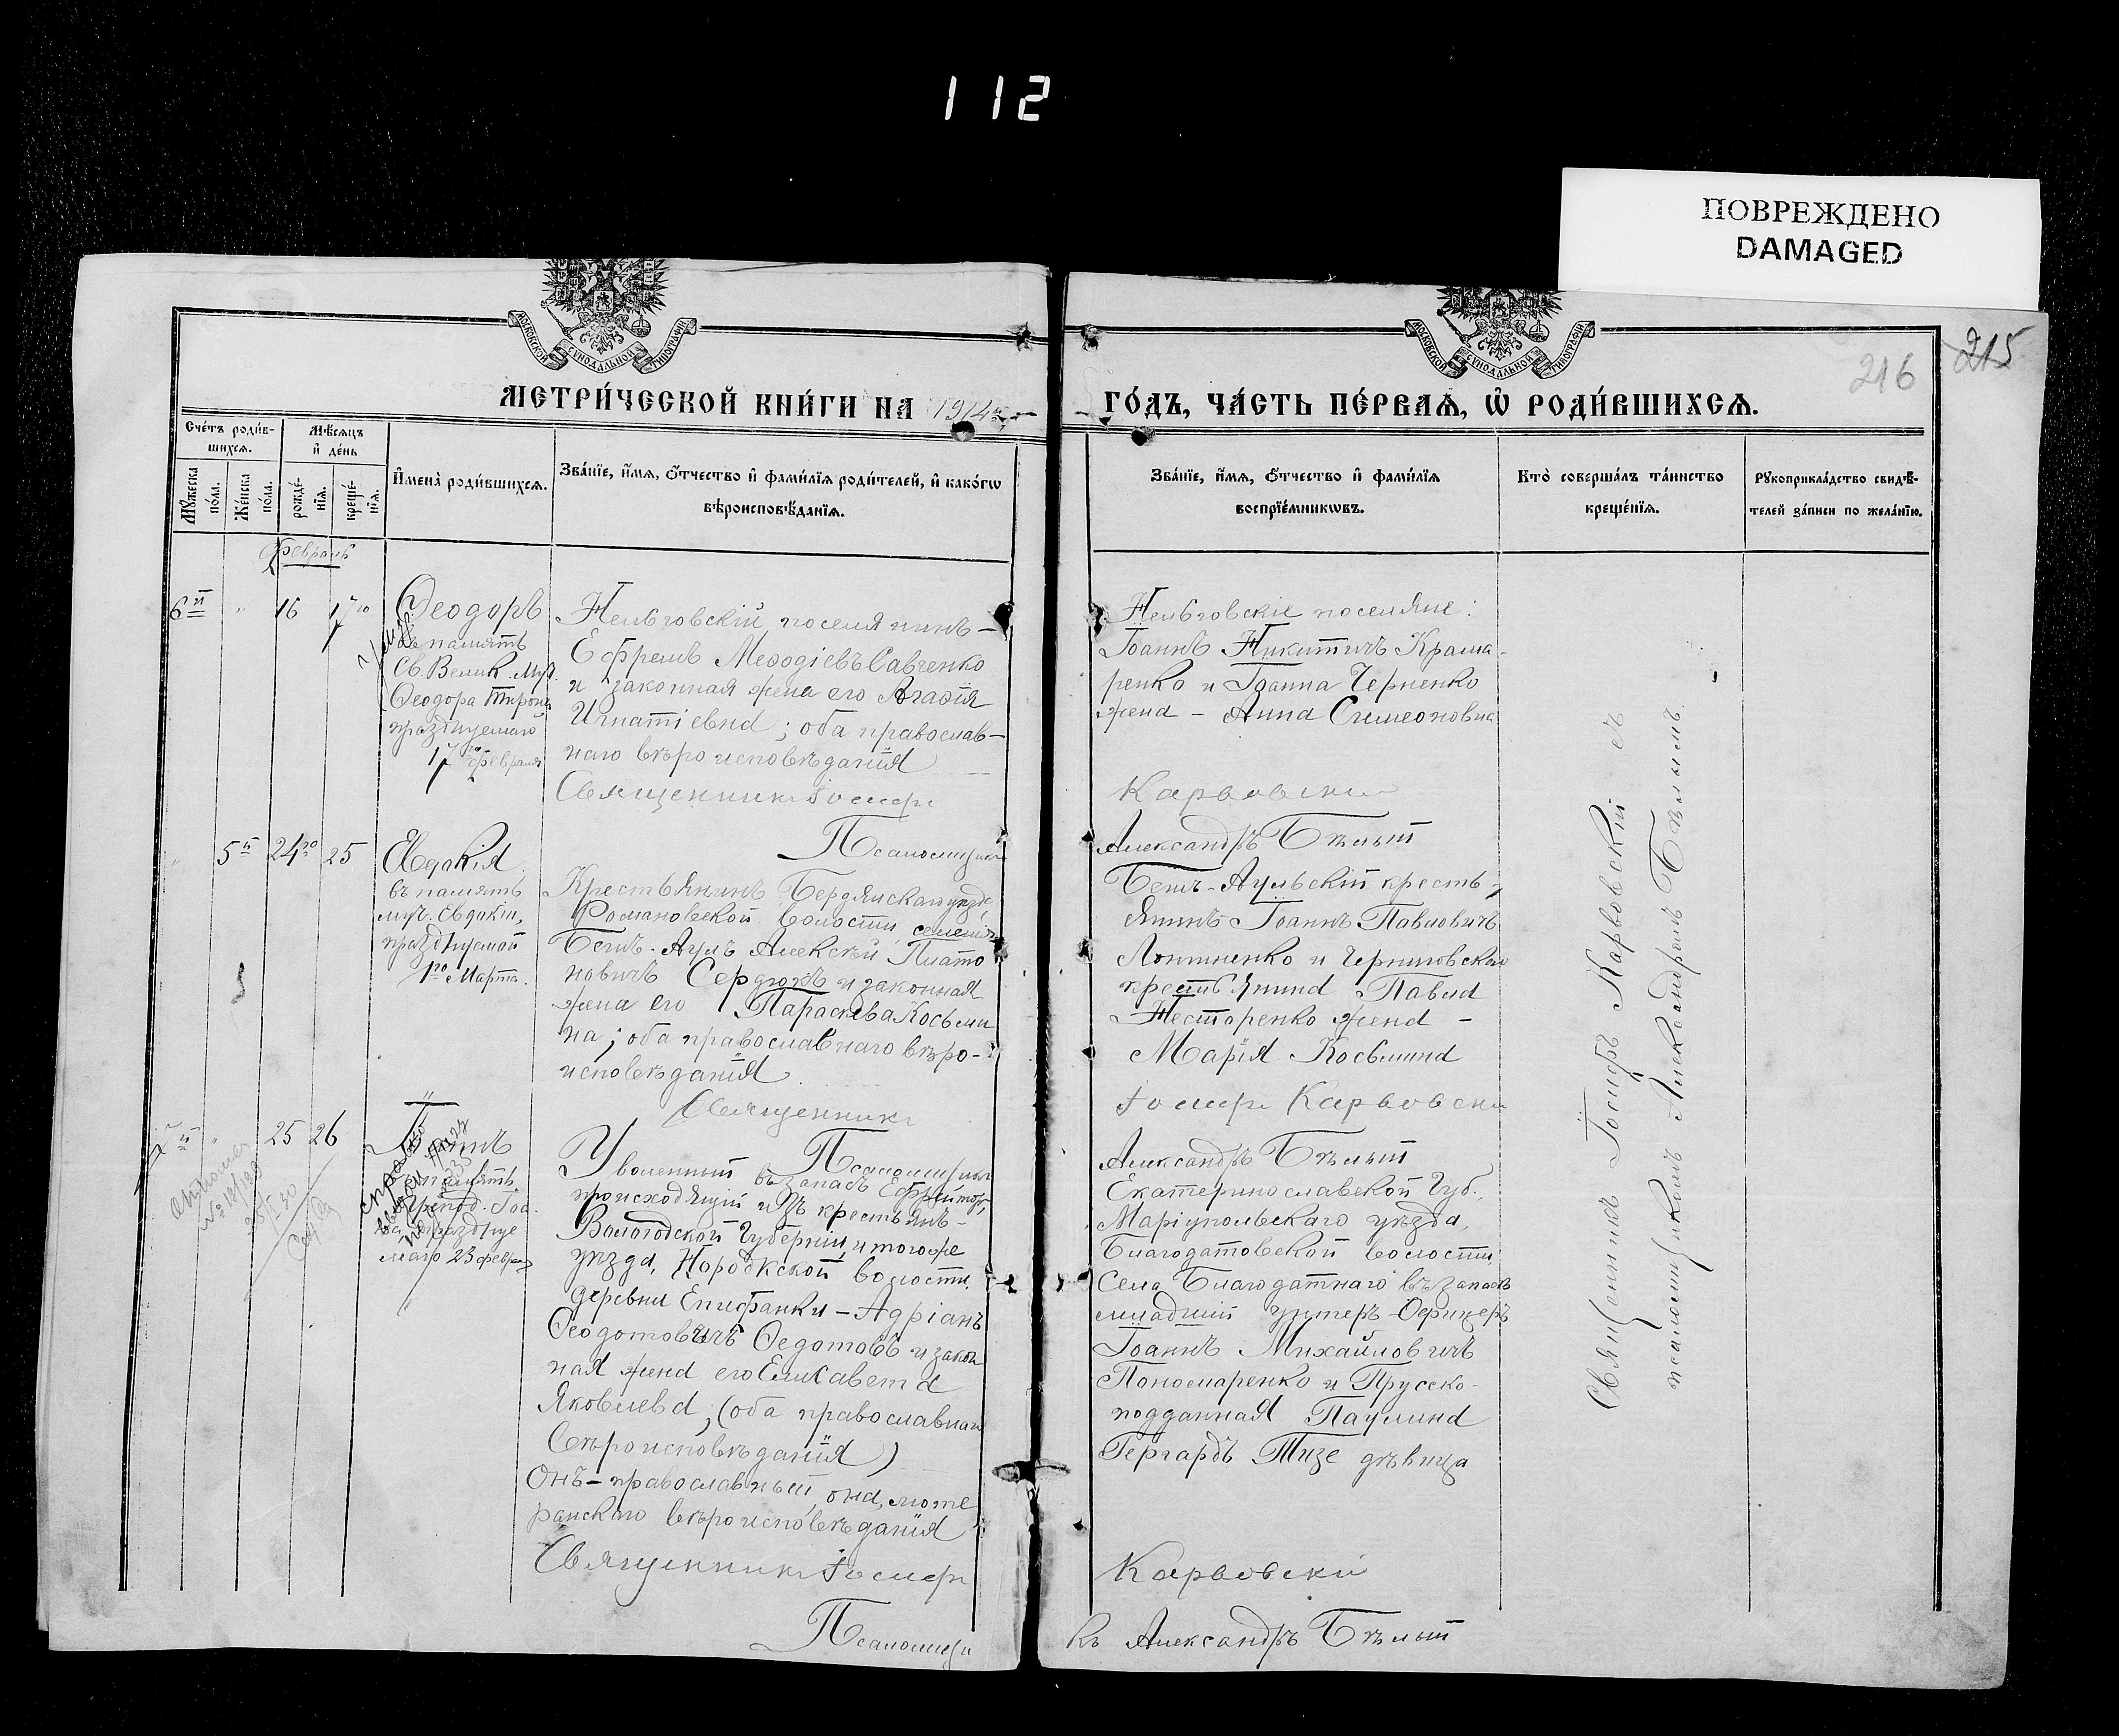 112
ПОВРЕЖДЕНО
DAMAGED
МОСКОВСКОЙ СѴНОДАЛЬНОЙ ТИПОГРАФІИ
МОСКОВСКОЙ СѴНОДАЛЬНОЙ ТИПОГРАФІИ
216
215
МЕТРИ́ЧЕСКОЙ КНИ́ГИ НА 1914
ГО́ДЪ, ЧА́СТЬ ПЕ́РВАѦ, Ѽ РОДИ́ВШИХСѦ.
Сче́тъ роди́в-
шихсѧ.
Мѣ́сѧцъ
и҆ де́нь
Мꙋ́жеска
по́ла.
Же́нска
по́ла.
рожде́-
нїѧ.
креще́-
нїѧ.
И҆мена̀ роди́вшихсѧ.
Зва́нїе, и҆́мѧ, ѻ҆́тчество и҆ фами́лїѧ роди́телей, и҆ како́гѡ
вѣроисповѣ́данїѧ.
Зва́нїе, и҆́мѧ, ѻ҆́тчество и҆ фами́лїѧ
воспрїе́мникѡвъ.
Кто̀ соверша́лъ та́инство
креще́нїѧ.
Рꙋкоприкла́дство свидѣ́-
телей за́писи по жела́нїю.
Февраль
6й " 16 17го
Ѳеодоръ
въ память
Св. Велик. Муч.
Ѳеодора Тирона
празднуемаго
17го февраля
Нельговскій поселянинъ –
Ефремъ Меѳодіевъ Савченко
и законная жена его Агаѳія
Игнатіевна; оба православ-
наго вѣроисповѣданія
Священникъ Іосифъ
Псаломщикъ
Нельговскіе поселяне:
Іоаннъ Никитичъ Крама-
ренко и Іоанна Черненко
жена – Анна Симеоновна
Карвовскій
Александръ Бѣлый
" 5й 24го 25
Евдокія
въ память
муч. Евдокіи,
празднуемой
1го Марта.
Крестьянинъ Бердянскаго уѣзда,
Романовской волости, селенія
Бешъ-Аулъ Алексѣй Плато
новичъ Сердюкъ и законная
жена его Параскева Косьми
на; оба православнаго вѣро-
исповѣданія
Священникъ
Псаломщикъ
Бешъ-Аульскій кресть-
янинъ Іоаннъ Павловичъ
Логвиненко и Черниговскаго
крестьянина Павла
Несторенко жена –
Марія Косьмина
Іосифъ Карвовскій
Александръ Бѣлый
7й " 25 26
Іоаннъ
память
Препод. Іоа-
праздную
маго 23 февраля
Уволенный въ запасъ Ефрейторъ,
происходящій изъ крестьянъ –
Вологодской Губерніи, и того же
уѣзда, Нородкской волости,
деревни Епифанки – Адріанъ
Ѳеодотовичъ Ѳедотовъ и закон
ная жена его Елисавета
Яковлева; (оба православнаго
вѣроисповѣданія)
Онъ – православный, она, люте
ранскаго вѣроисповѣданія
Священникъ Іосифъ
Псаломщи
Екатеринославской Губ.,
Маріупольскаго уѣзда,
Благодатовской волости,
Села Благодатнаго въ запасѣ
младшій Унтеръ-Офицеръ
Іоаннъ Михайловичъ
Пономаренко и Прусско-
подданная Паулина
Гергардъ Тизе дѣвица
Карвовскій
къ Александръ Бѣлый
Священникъ Іосифъ Карвовскій съ
псаломщикомъ Александромъ Бѣлымъ